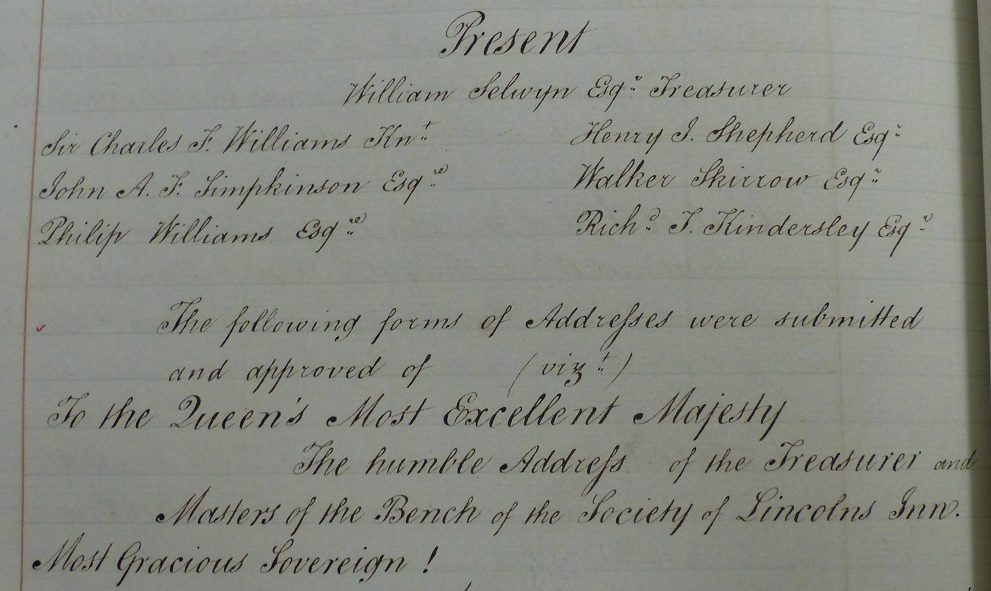 Present
William Selwyn Esqr Treasurer
Sir Charles F. Williams Knt
Henry J. Shepherd Esqr
John A. F. Simpkinson Esqre
Walker Skirrow Esqr
Philip Williams Esqre
Richd T. Kindersley Esqr
The following forms of Addreſses were submitted
and approved of (vizt)
To the Queen's Most Excellent Majesty
The humble Addreſs of the Treasurer and
Masters of the Bench of the Society of Lincolns Inn.
Most Gracious Sovereign !